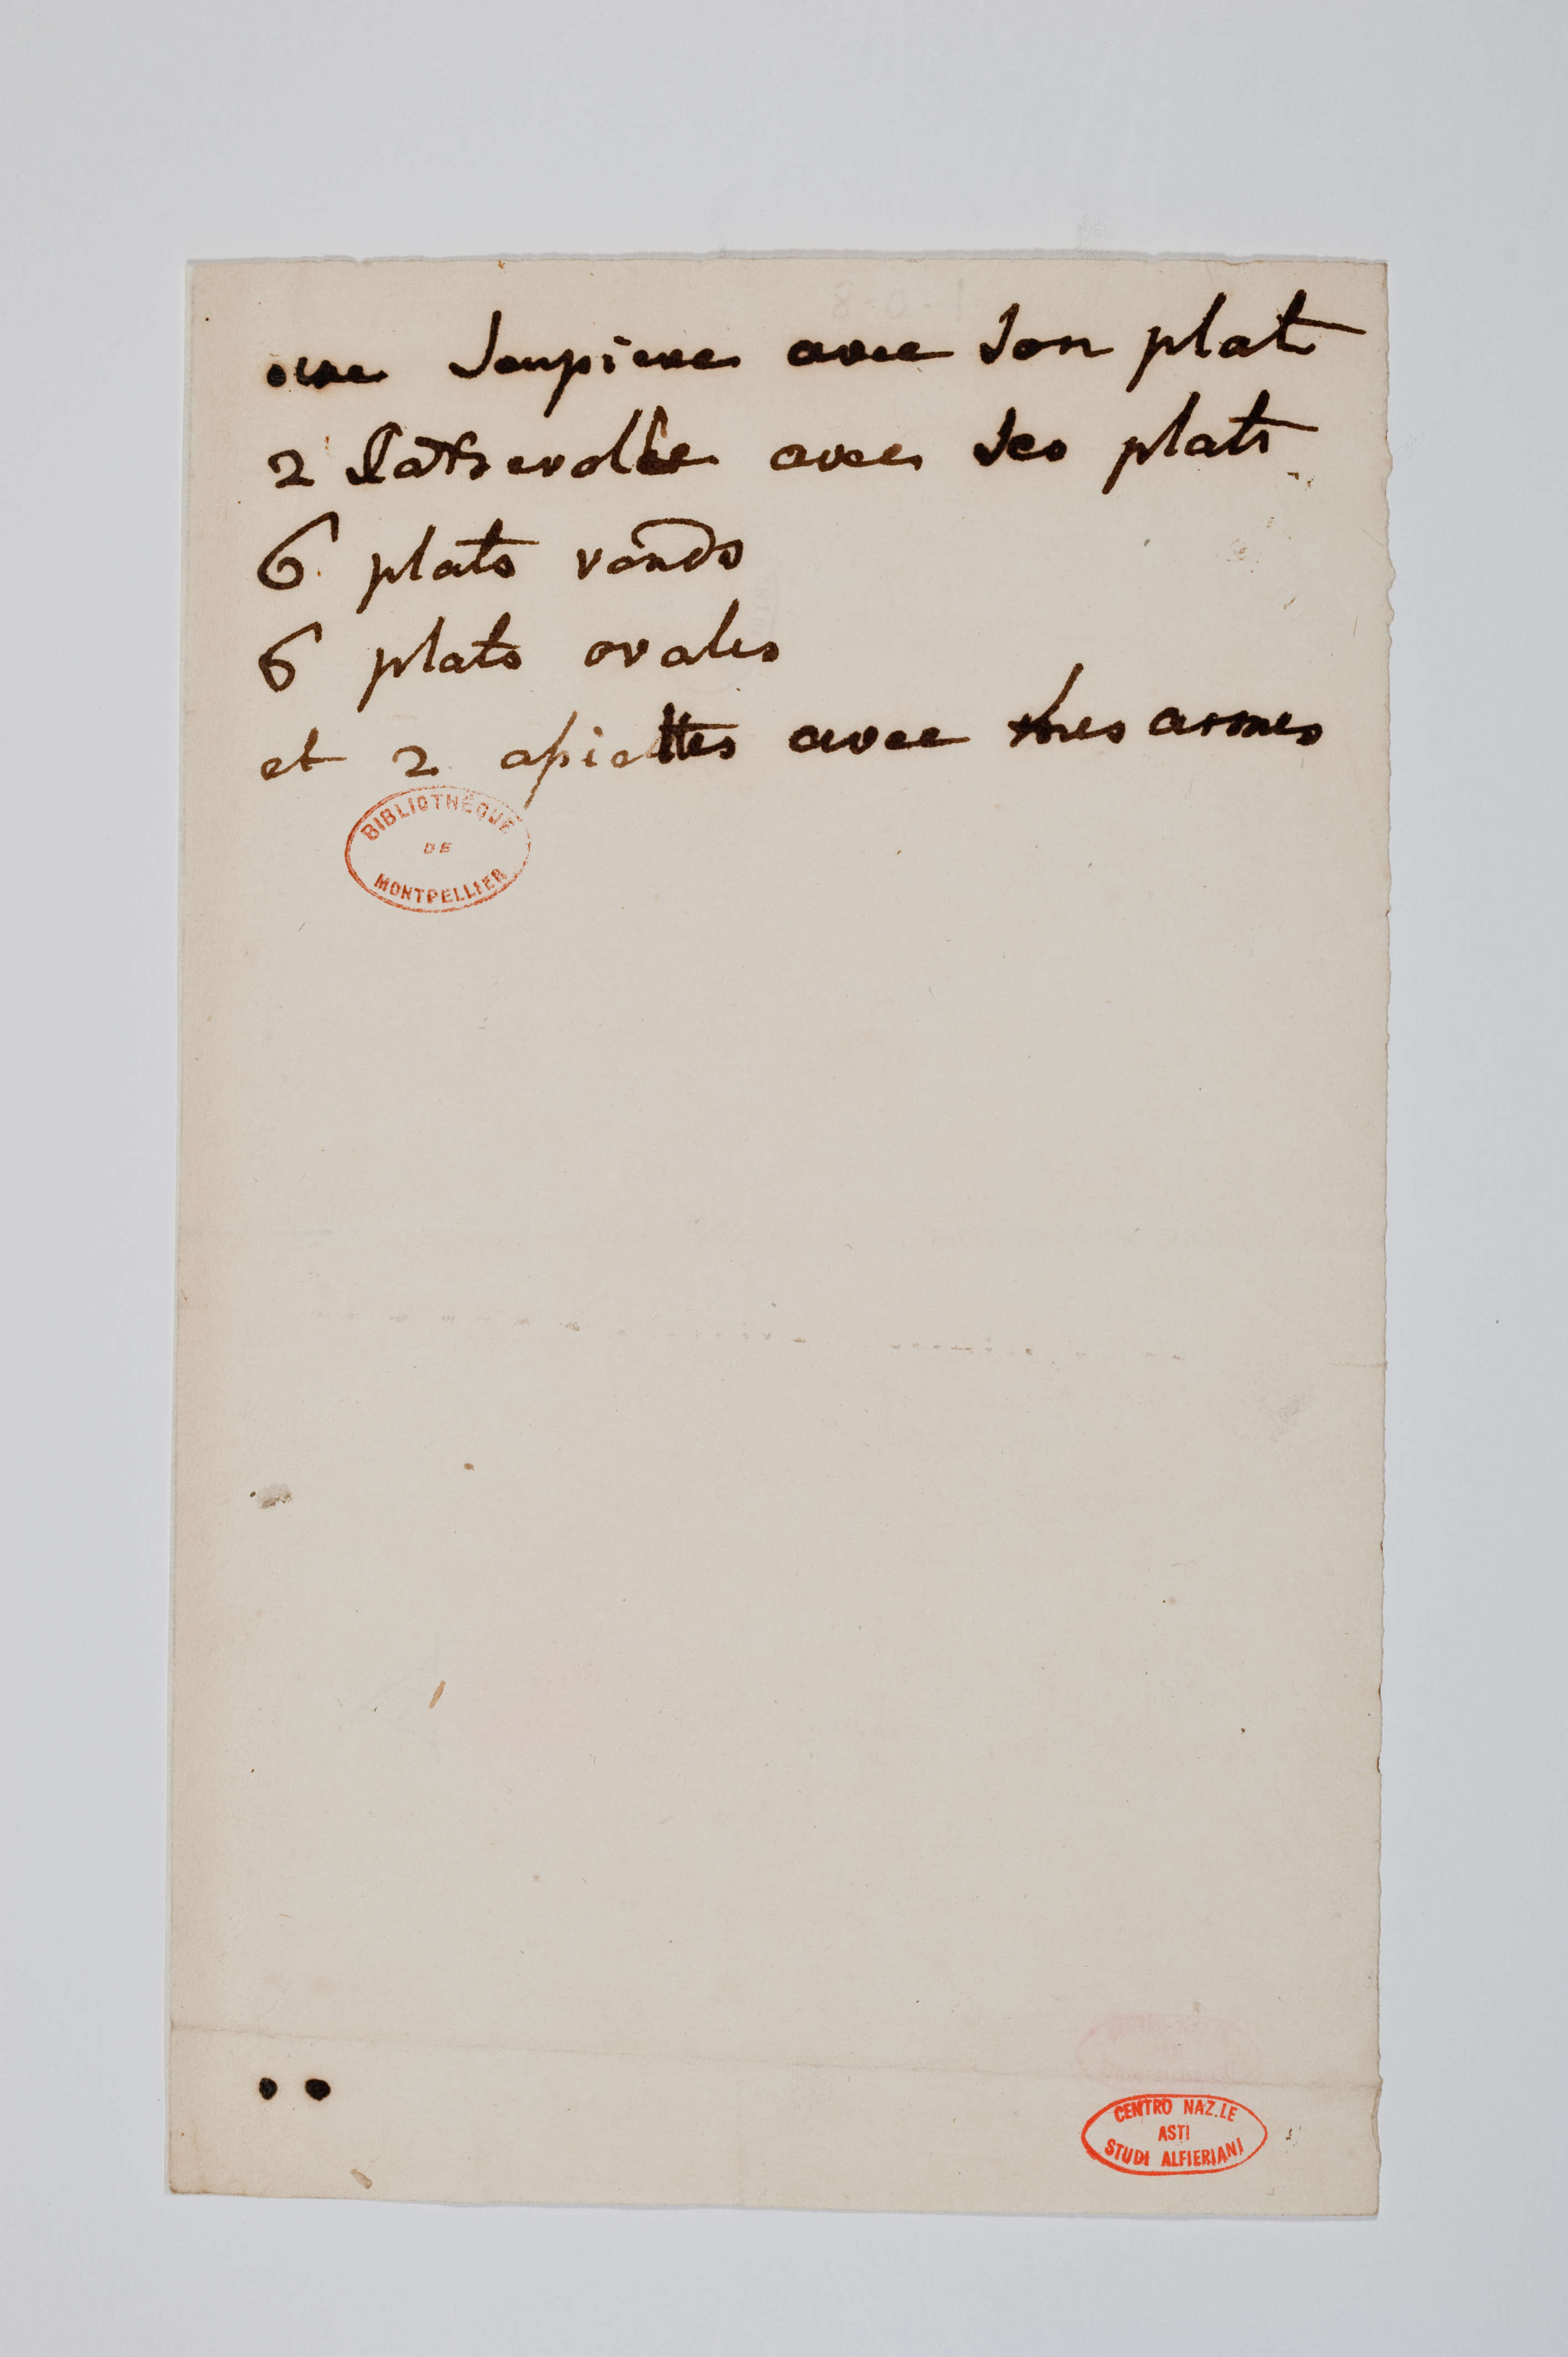 une Soupiere avec Son plat
2 avec Ses plats
6 plats ronds
6 plats ovales
et 2 assiettes avec mes armes
BIBLIOTHÈQUE
DE
MONTPELLIER
CENTRO NAZ.LE
ASTI
STUDI ALFIERIANI